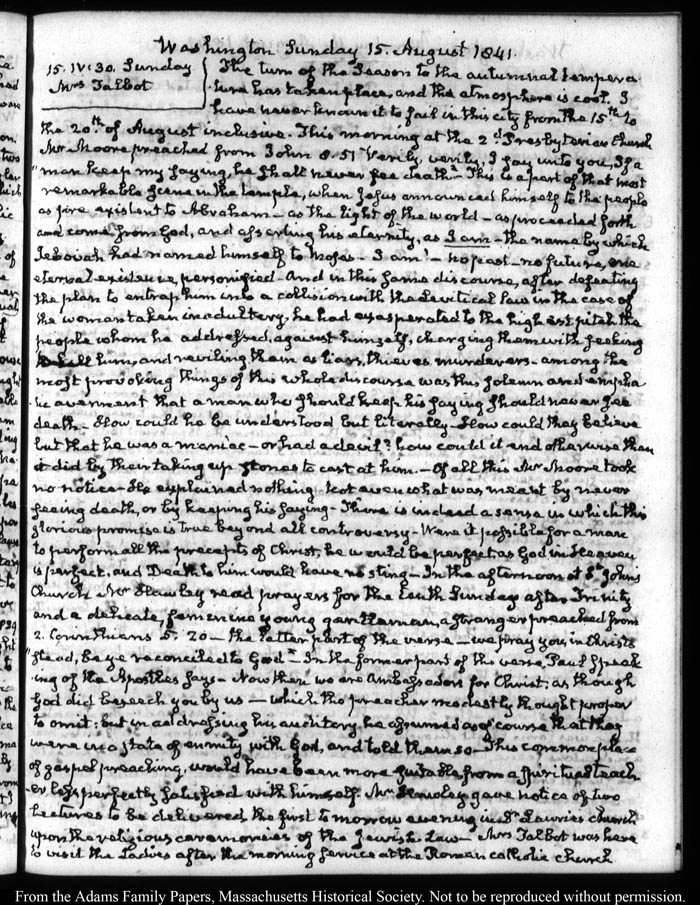 Washington Sunday 15. August 1841.
15. IV:30. Sunday
Mrs Talbot
The turn of the Season to the autumnal tempera-
ture has taken place, and the atmosphere is cool. I
have never known it to fail in this city from the 15.th to
the 20.th of August inclusive. This morning at the 2.d Presbyterian Church
Mr Moore preached from John 8.51 "Verily, verily, I say unto you, If a
"man keep my saying, he shall never see death." This is a part of that most
remarkable scene in the temple, when Jesus announced himself to the people
as pre existent to Abraham - as the light of the world - as proceeded forth
and come from God, and asserting his eternity, as I am - the name by which
Jehovah had named himself to Moses - I am! - no past - no future, one
eternal existence, personified - And in this same discourse, after defeating
the plan to entrap him into a collision with the Levitical law in the case of
the woman taken in adultery, he had exasperated to the highest pitch the
people whom he addressed, against himself, charging them with seeking
to kill him, and reviling them as liars, thieves murderers - among the
most provoking things of this whole discourse was this solemn and empha-
tic averment that a man who should keep his saying should never see
death - How could he be understood but literally - How could they believe
but that he was a maniac - or had a devil? how could it end otherwise than
it did by their taking up stones to cast at him. - Of all this Mr Moore took
no notice - He explained nothing - Not even what was meant by never
seeing death, or by keeping his saying - There is indeed a sense in which this
glorious promise is true beyond all controversy - Were it possible for a man
to perform all the precepts of Christ, he would be perfect, as God in Heaven
is perfect, and Death to him would have no sting - In the afternoon at St. John's
Church Mr Hawley read prayers for the tenth Sunday after Trinity
and a delicate, feminine young gentleman, a stranger preached from
2. Corinthians 5. 20 - the latter part of the verse - "we pray you, in Christs
"stead, be ye reconciled to God" - In the former part of the verse, Paul speak-
ing of the Apostles says - Now then we are Ambassadors for Christ; as though
God did beseech you by us - which the preacher modestly thought proper
to omit: but in addressing his auditory, he assumed as of course that they
were in a state of enmity with God, and told them so - This common place
of gospel preaching, would have been more suitable from a spiritual teach-
er less perfectly satisfied with himself. Mr Hawley gave notice of two
Lectures to be delivered, the first to morrow evening in Dr Lauries church
upon the religious ceremonies of the Jewish Law - Mrs Talbot was here
to visit the Ladies after the morning service at the Roman catholic church
From the Adams Family Papers, Massachusetts Historical Society. Not to be reproduced without permission.